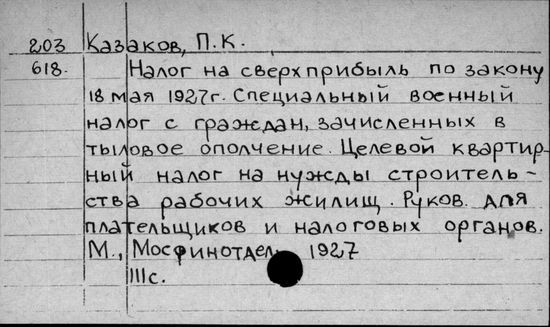 203 Казаков, П.К.
618. Налог на сверхприбыль по закону
18 мая 1927г. Специальный военный
налог с граждан, зачисленных в
тыловое ополчение. Целевой квартир-
ный налог на нужды строитель-
ства рабочих жилищ. Руков. для
плательщиков и налоговых органов.
М., Мосфинотдел, 1927
111с.